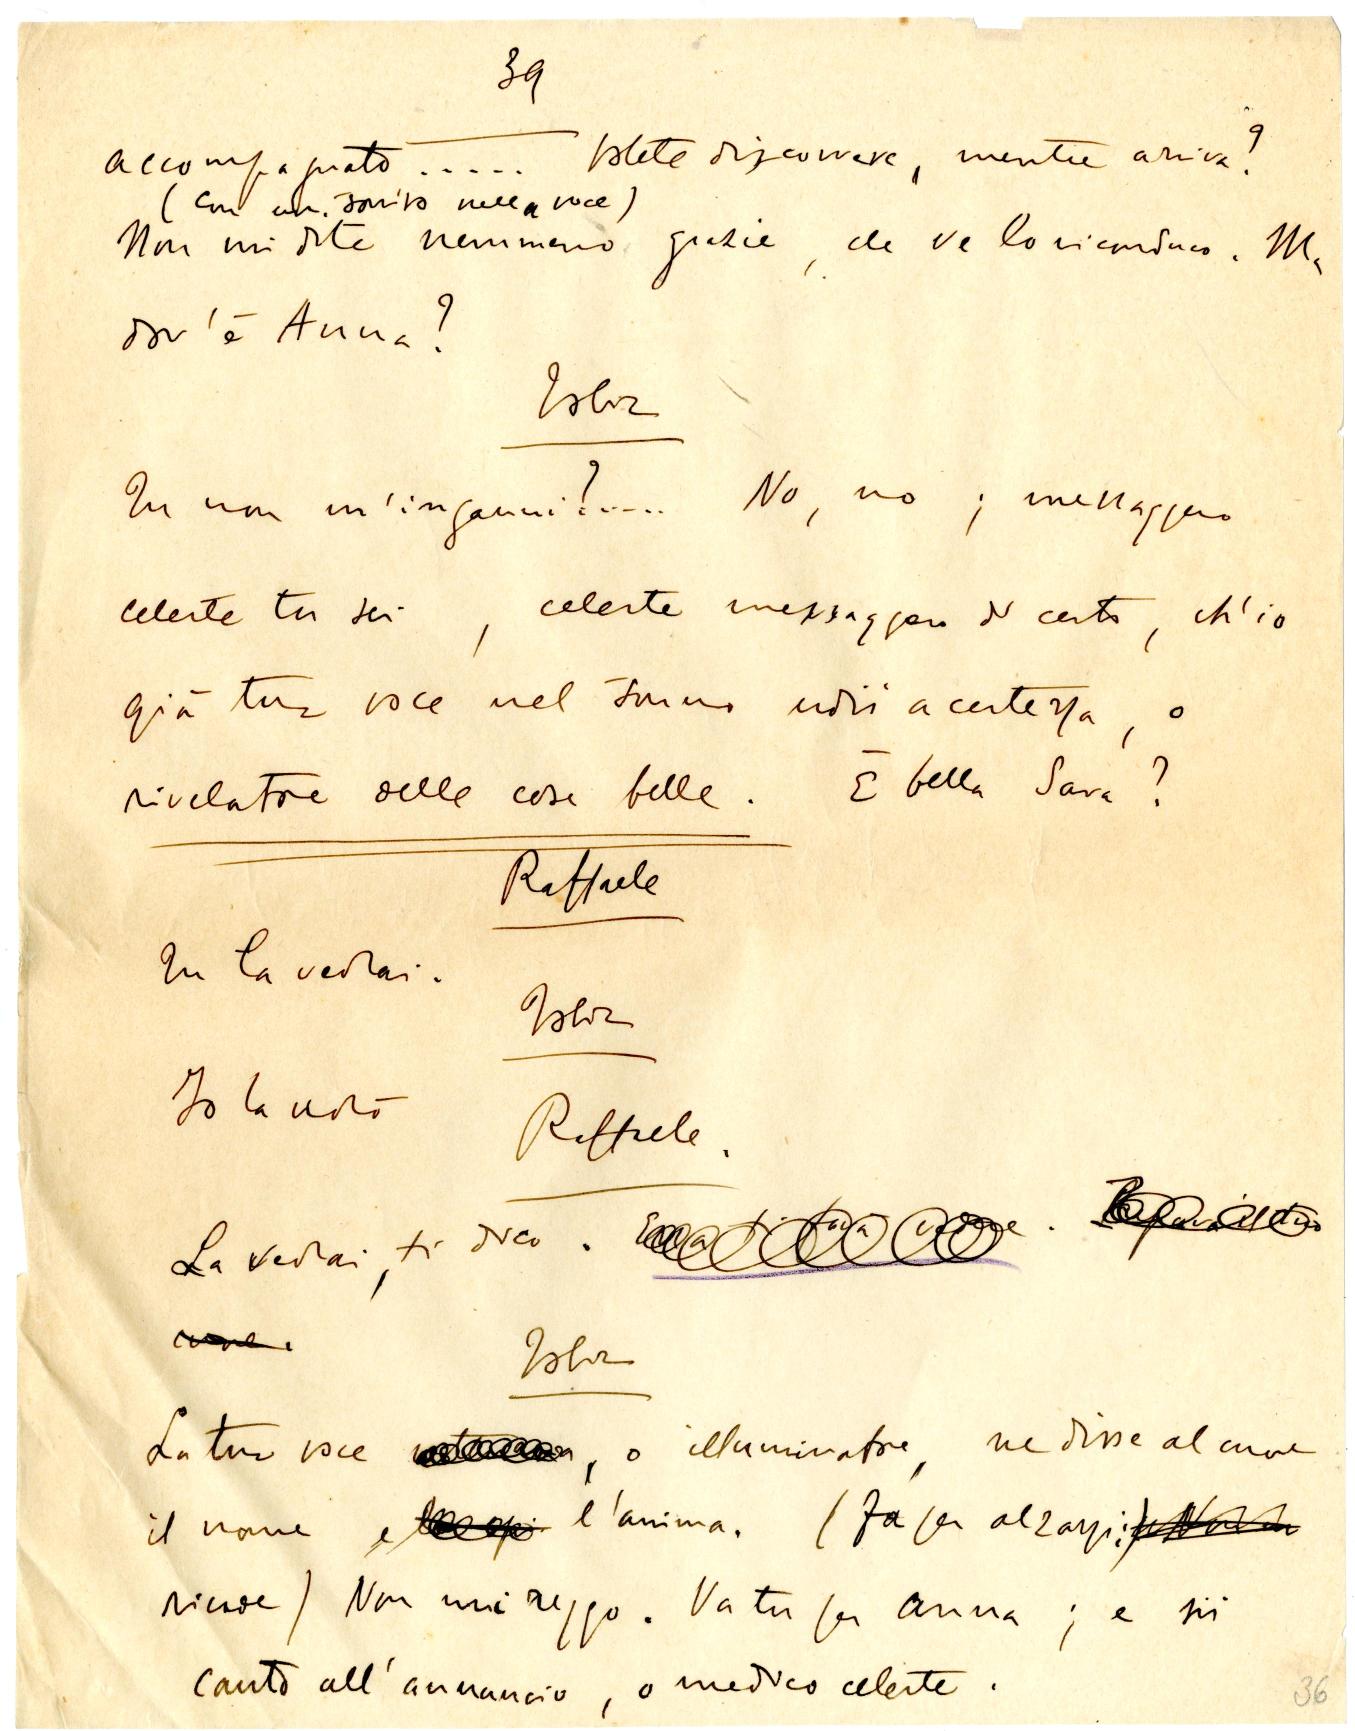 39
accompagnato ..... Potete discorrere, mentre arriva?
(con un sorriso nella voce)
Non mi dite nemmeno grazie, che ve lo riconduco. Ma
dov'è Anna?
Tobia
Tu non m'inganni?.... No, no ; messaggero
celeste tu sei , celeste messaggero di certo, ch'io
già tua voce nel sonno udii a certezza, o
rivelatore delle cose belle. È bella Sara?
Raffaele
Tu la vedrai.
Tobia
Io la vedrò
Raffaele.
La vedrai, ti dico. Essa ti farà vedere.
cuore.
Tobia
La tua voce , o illuminatore, ne disse al cuore
il nome e l'anima. (fa per alzarsi;
ricade) Non mi reggo. Va tu per Anna ; e sii
cauto all'annuncio, o medico celeste.
36